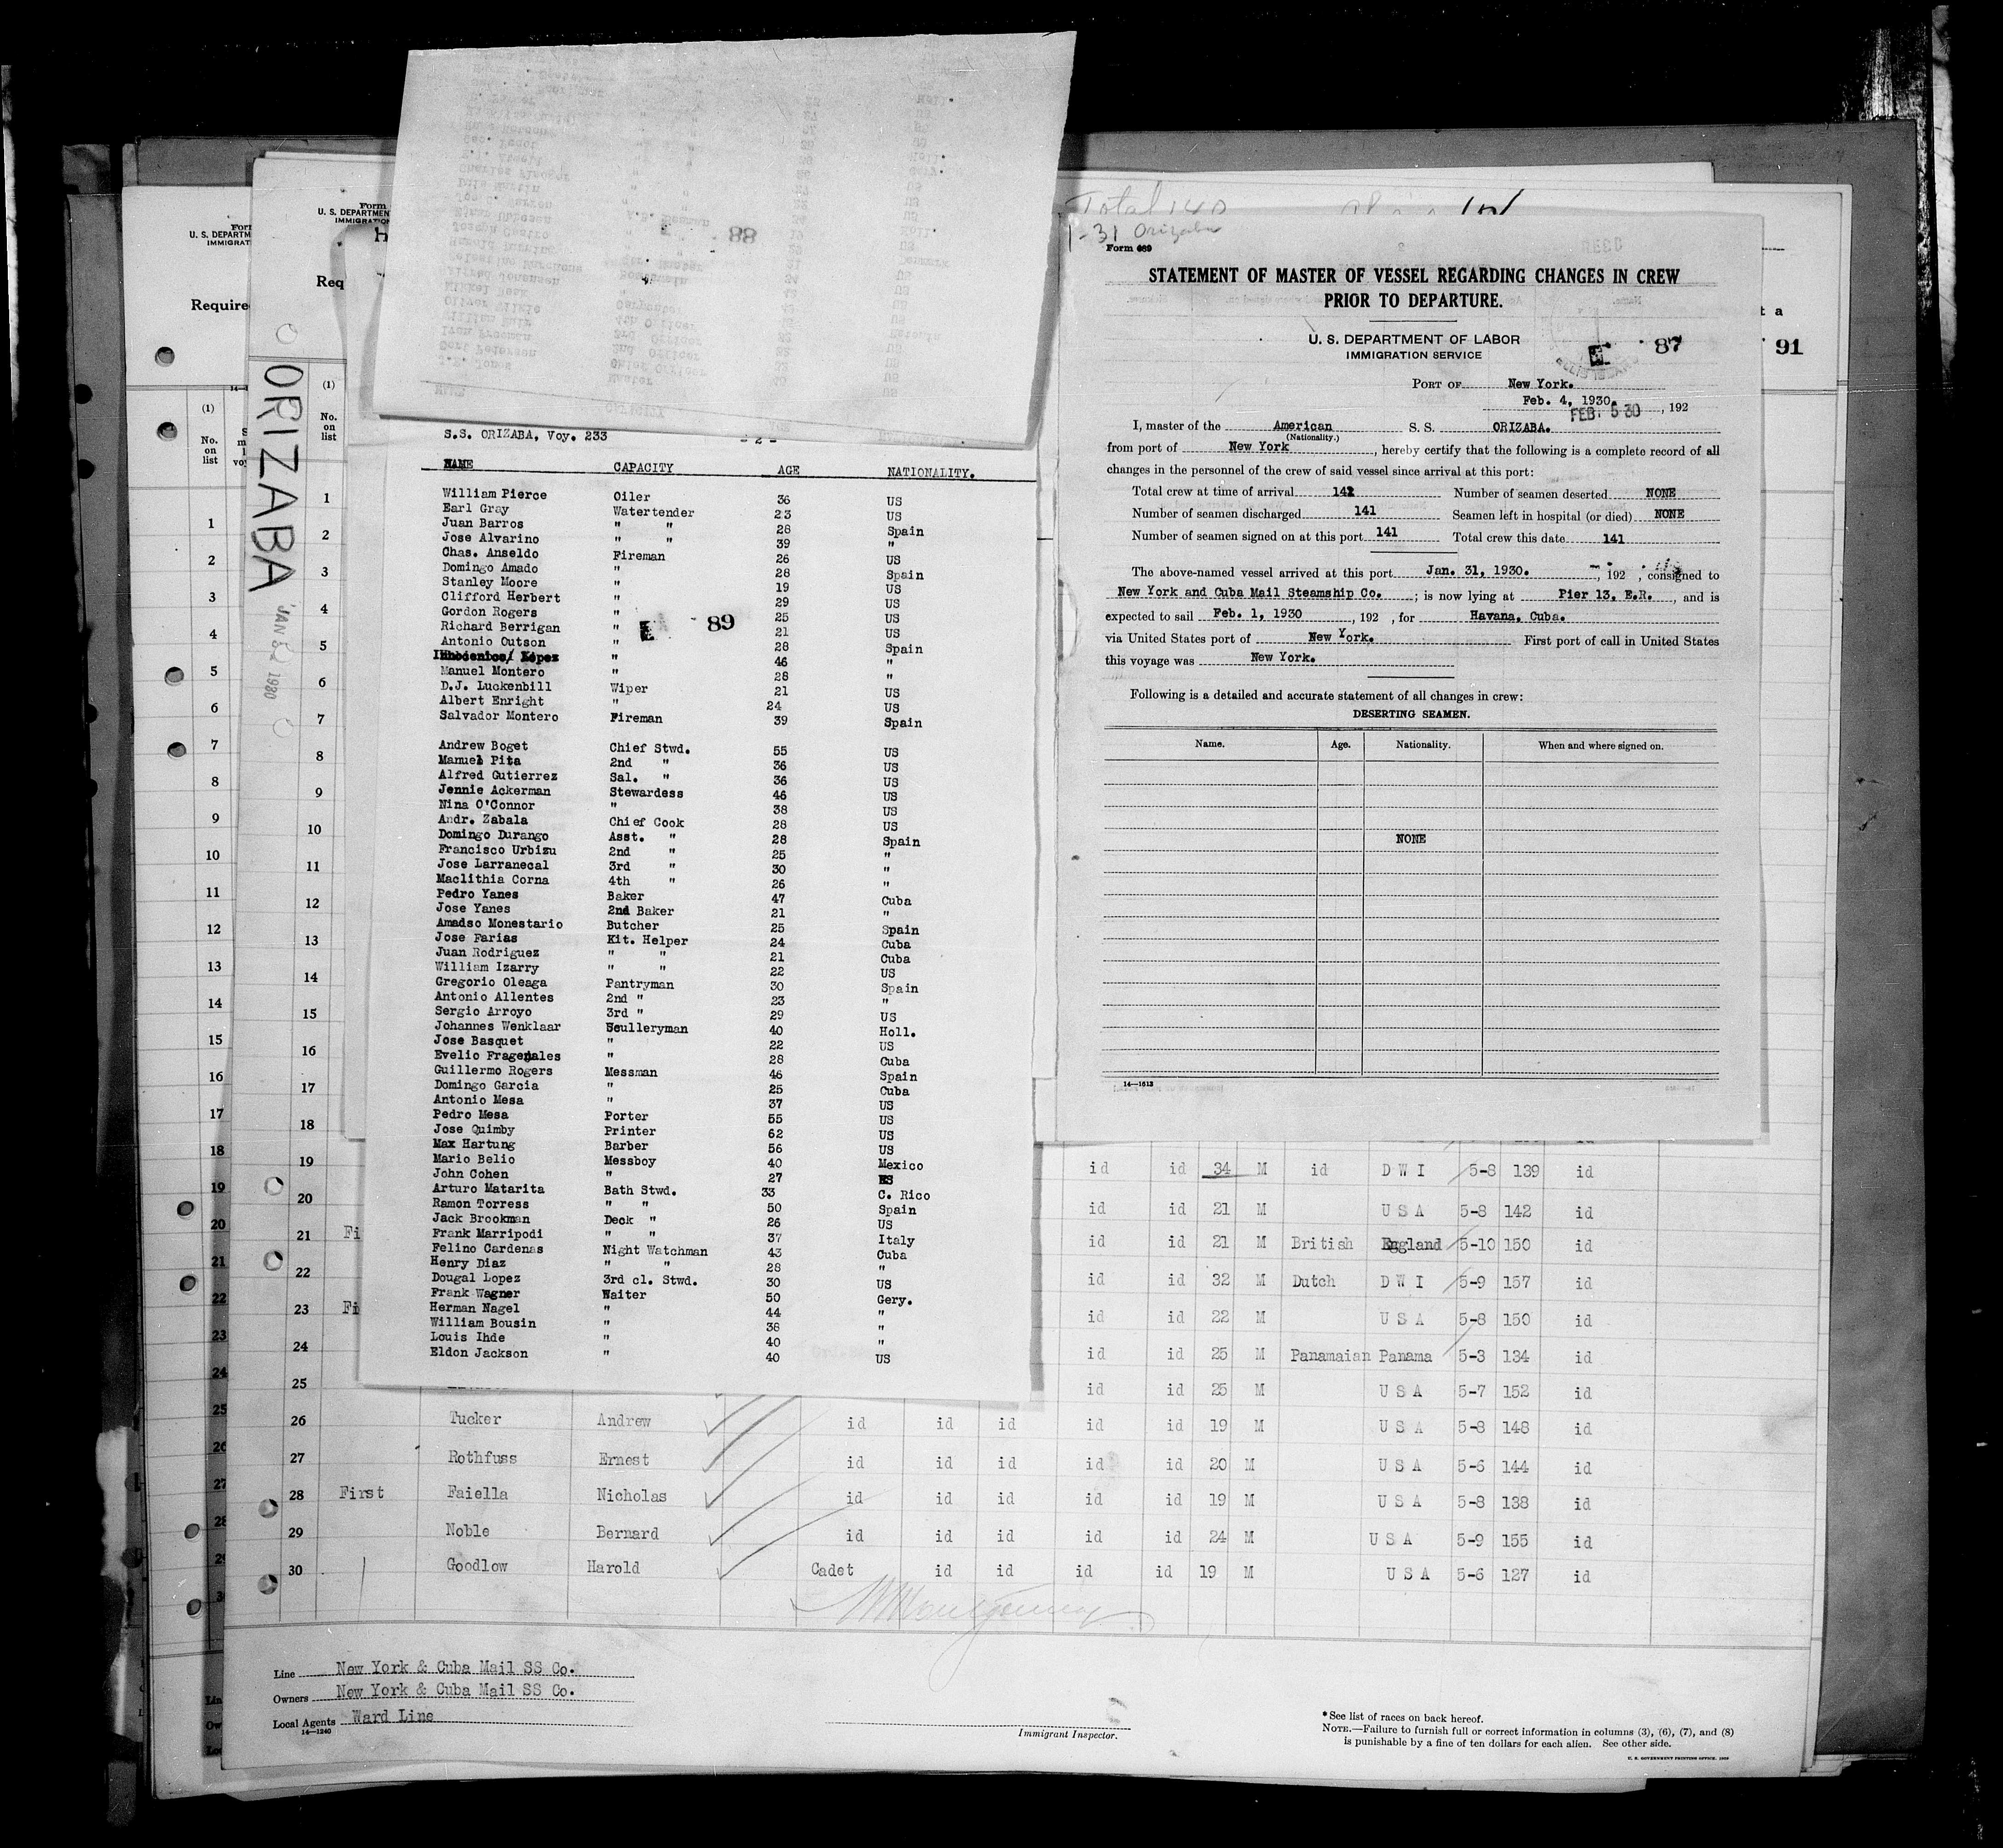 Total 140
1-31 Orizaba
Form 689
STATEMENT OF MASTER OF VESSEL REGARDING CHANGES IN CREW
PRIOR TO DEPARTURE.
U. S. DEPARTMENT OF LABOR
IMMIGRATION SERVICE
87
91
PORT OF New York.
Feb. 4, 1930.
FEB. 5 30, 192
I, master of the American S. S. ORIZABA.
(Nationality.)
from port of New York, hereby certify that the following is a complete record of all
changes in the personnel of the crew of said vessel since arrival at this port:
Total crew at time of arrival 142 Number of seamen deserted NONE
Number of seamen discharged 141 Seamen left in hospital (or died) NONE
Number of seamen signed on at this port 141 Total crew this date 141
The above-named vessel arrived at this port Jan. 31, 1930. , 192 , consigned to
New York and Cuba Mail Steamship Co. ; is now lying at Pier 13. E.R. , and is
expected to sail Feb. 1, 1930 , 192 , for Havana, Cuba.
via United States port of New York. First port of call in United States
this voyage was New York.
Following is a detailed and accurate statement of all changes in crew:
DESERTING SEAMEN.
Name. Age. Nationality. When and where signed on.
NONE
14—1613
88
S.S. ORIZABA, Voy. 233 - 2 -
NAME CAPACITY AGE NATIONALITY.
William Pierce Oiler 36 US
Earl Gray Watertender 23 US
Juan Barros " " 28 Spain
Jose Alvarino " " 39 "
Chas. Anseldo Fireman 26 US
Domingo Amado " 28 Spain
Stanley Moore " 19 US
Clifford Herbert " 29 US
Gordon Rogers " 25 US
Richard Berrigan " 21 US
89
Antonio Outson " 28 Spain
Lopez " 46 "
Manuel Montero " 28 "
D.J. Luckenbill Wiper 21 US
Albert Enright " 24 US
Salvador Montero Fireman 39 Spain
Andrew Boget Chief Stwd. 55 US
Manuel Pita 2nd " 36 US
Alfred Gutierrez Sal. " 36 US
Jennie Ackerman Stewardess 46 US
Nina O'Connor " 38 US
Andr. Zabala Chief Cook 28 US
Domingo Durango Asst. " 28 Spain
Francisco Urbizu 2nd " 25 "
Jose Larranecal 3rd " 30 "
Maclithia Corna 4th " 26 "
Pedro Yanes Baker 47 Cuba
Jose Yanes 2nd Baker 21 "
Amadso Monestario Butcher 25 Spain
Jose Farias Kit. Helper 24 Cuba
Juan Rodriguez " " 21 Cuba
William Izarry " " 22 US
Gregorio Oleaga Pantryman 30 Spain
Antonio Allentes 2nd " 23 "
Sergio Arroyo 3rd " 29 US
Johannes Wenklaar Sculleryman 40 Holl.
Jose Basquet " 22 US
Evelio Fragenales " 28 Cuba
Guillermo Rogers Messman 46 Spain
Domingo Garcia " 25 Cuba
Antonio Mesa " 37 US
Pedro Mesa Porter 55 US
Jose Quimby Printer 62 US
Max Hartung Barber 56 US
Mario Belio Messboy 40 Mexico
John Cohen " 27 US
Arturo Matarita Bath Stwd. 33 C. Rico
Ramon Torress " " 50 Spain
Jack Brookman Deck " 26 US
Frank Marripodi " " 37 Italy
Felino Cardenas Night Watchman 43 Cuba
Henry Diaz " " 28 "
Dougal Lopez 3rd cl. Stwd. 30 US
Frank Wagner Waiter 50 Gery.
Herman Nagel " 44 "
William Bousin " 38 "
Louis Ihde " 40 "
Eldon Jackson " 40 US
ORIZABA
Form
U. S. DEPARTMENT
IMMIGRATION
Req
Require
(1)
No. on list
id id 34 M id D W I 5-8 139 id
id id 21 M U S A 5-8 142 id
21 Fi id id 21 M British England 5-10 150 id
22 id id 32 M Dutch D W I 5-9 157 id
23 Fi id id 22 M U S A 5-8 150 id
24 id id 25 M Panamaian Panama 5-3 134 id
25 id id 25 M U S A 5-7 152 id
26 Tucker Andrew id id id id id 19 M U S A 5-8 148 id
27 Rothfuss Ernest id id id id id 20 M U S A 5-6 144 id
28 First Faiella Nicholas id id id id id 19 M U S A 5-8 138 id
29 Noble Bernard id id id id id 24 M U S A 5-9 155 id
30 Goodlow Harold Cadet id id id id 19 M U S A 5-6 127 id
Line New York & Cuba Mail SS Co.
Owners New York & Cuba Mail SS Co.
Local Agents Ward Line
14—1240
Immigrant Inspector.
* See list of races on back hereof.
NOTE.—Failure to furnish full or correct information in columns (3), (6), (7), and (8)
is punishable by a fine of ten dollars for each alien. See other side.
U. S. GOVERNMENT PRINTING OFFICE